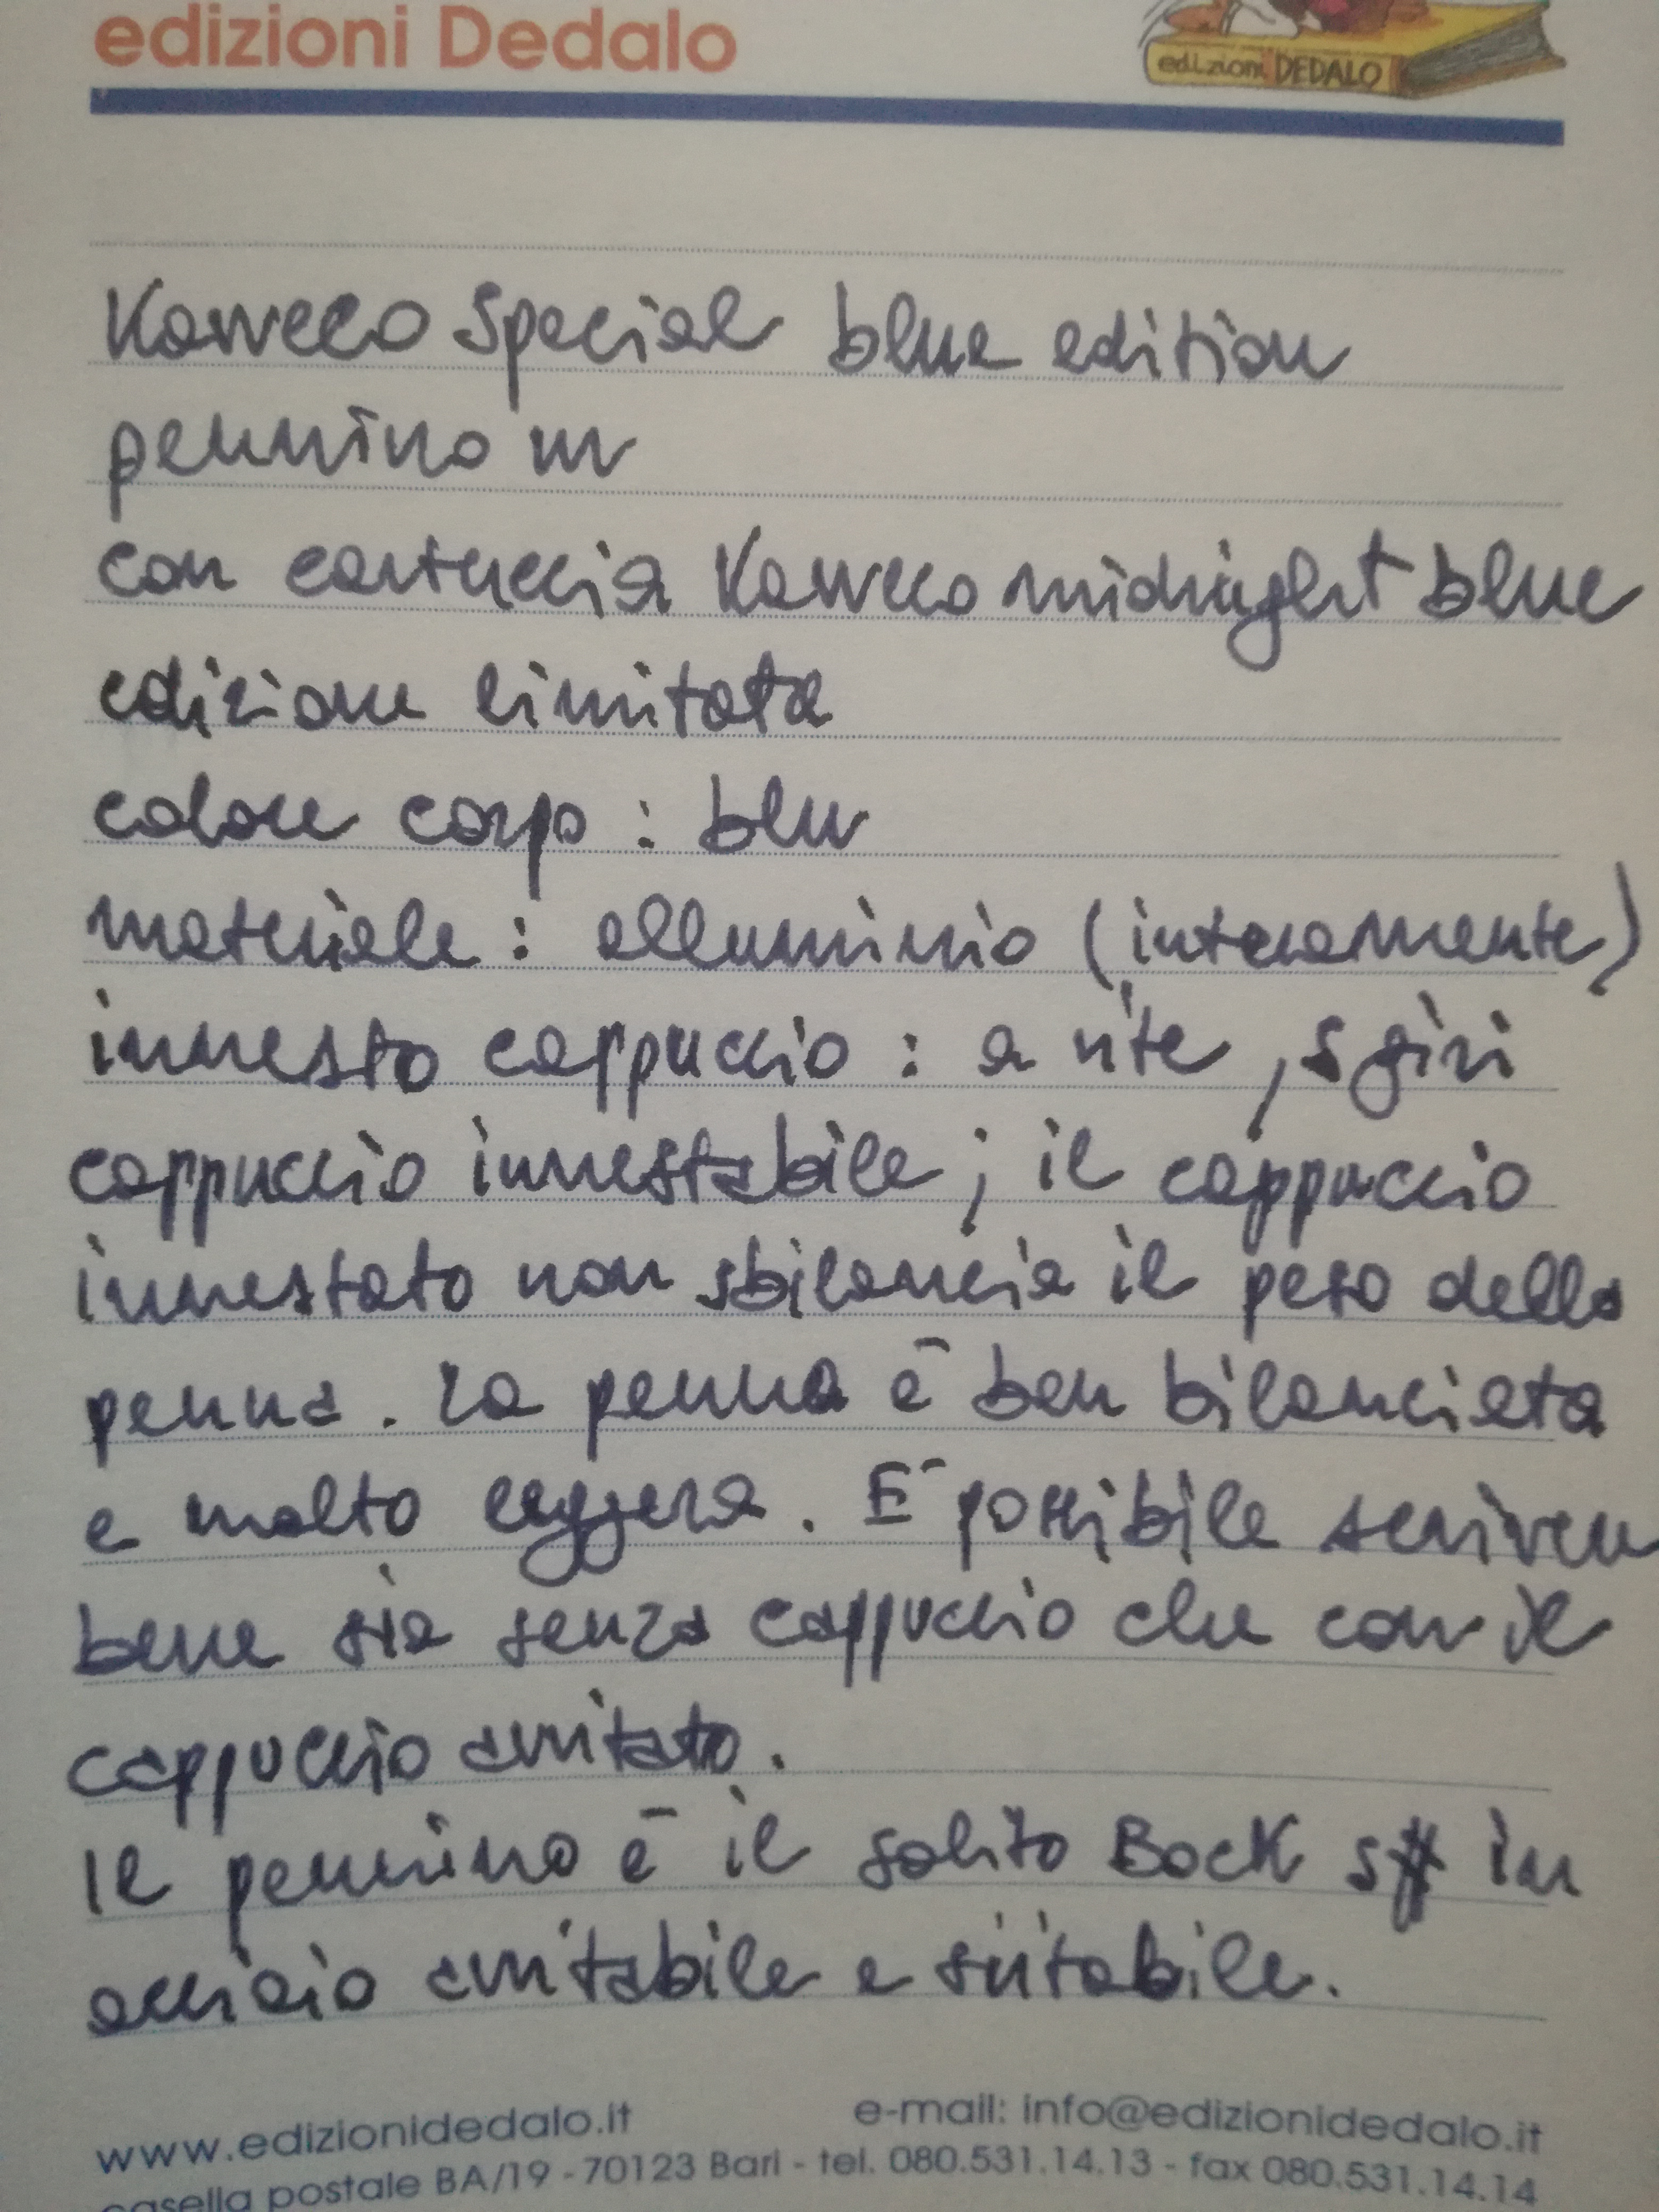 edizioni Dedalo
edizioni DEDALO
Kaweco Special blue edition
pennino m
con cartuccia Kaweco midnight blue
edizione limitata
colore corpo : blu
materiale : alluminio (interamente)
innesto cappuccio : a vite , 5 giri
cappuccio innestabile ; il cappuccio
innestato non sbilancia il peso della
penna . La penna è ben bilanciata
e molto leggera . E' possibile scrivere
bene sia senza cappuccio che con il
cappuccio avvitato .
Il pennino è il solito Bock in
acciaio avvitabile e svitabile .
www.edizionidedalo.it e-mail: info@edizionidedalo.it
casella postale BA/19 - 70123 Bari - tel. 080.531.14.13 - fax 080.531.14.14